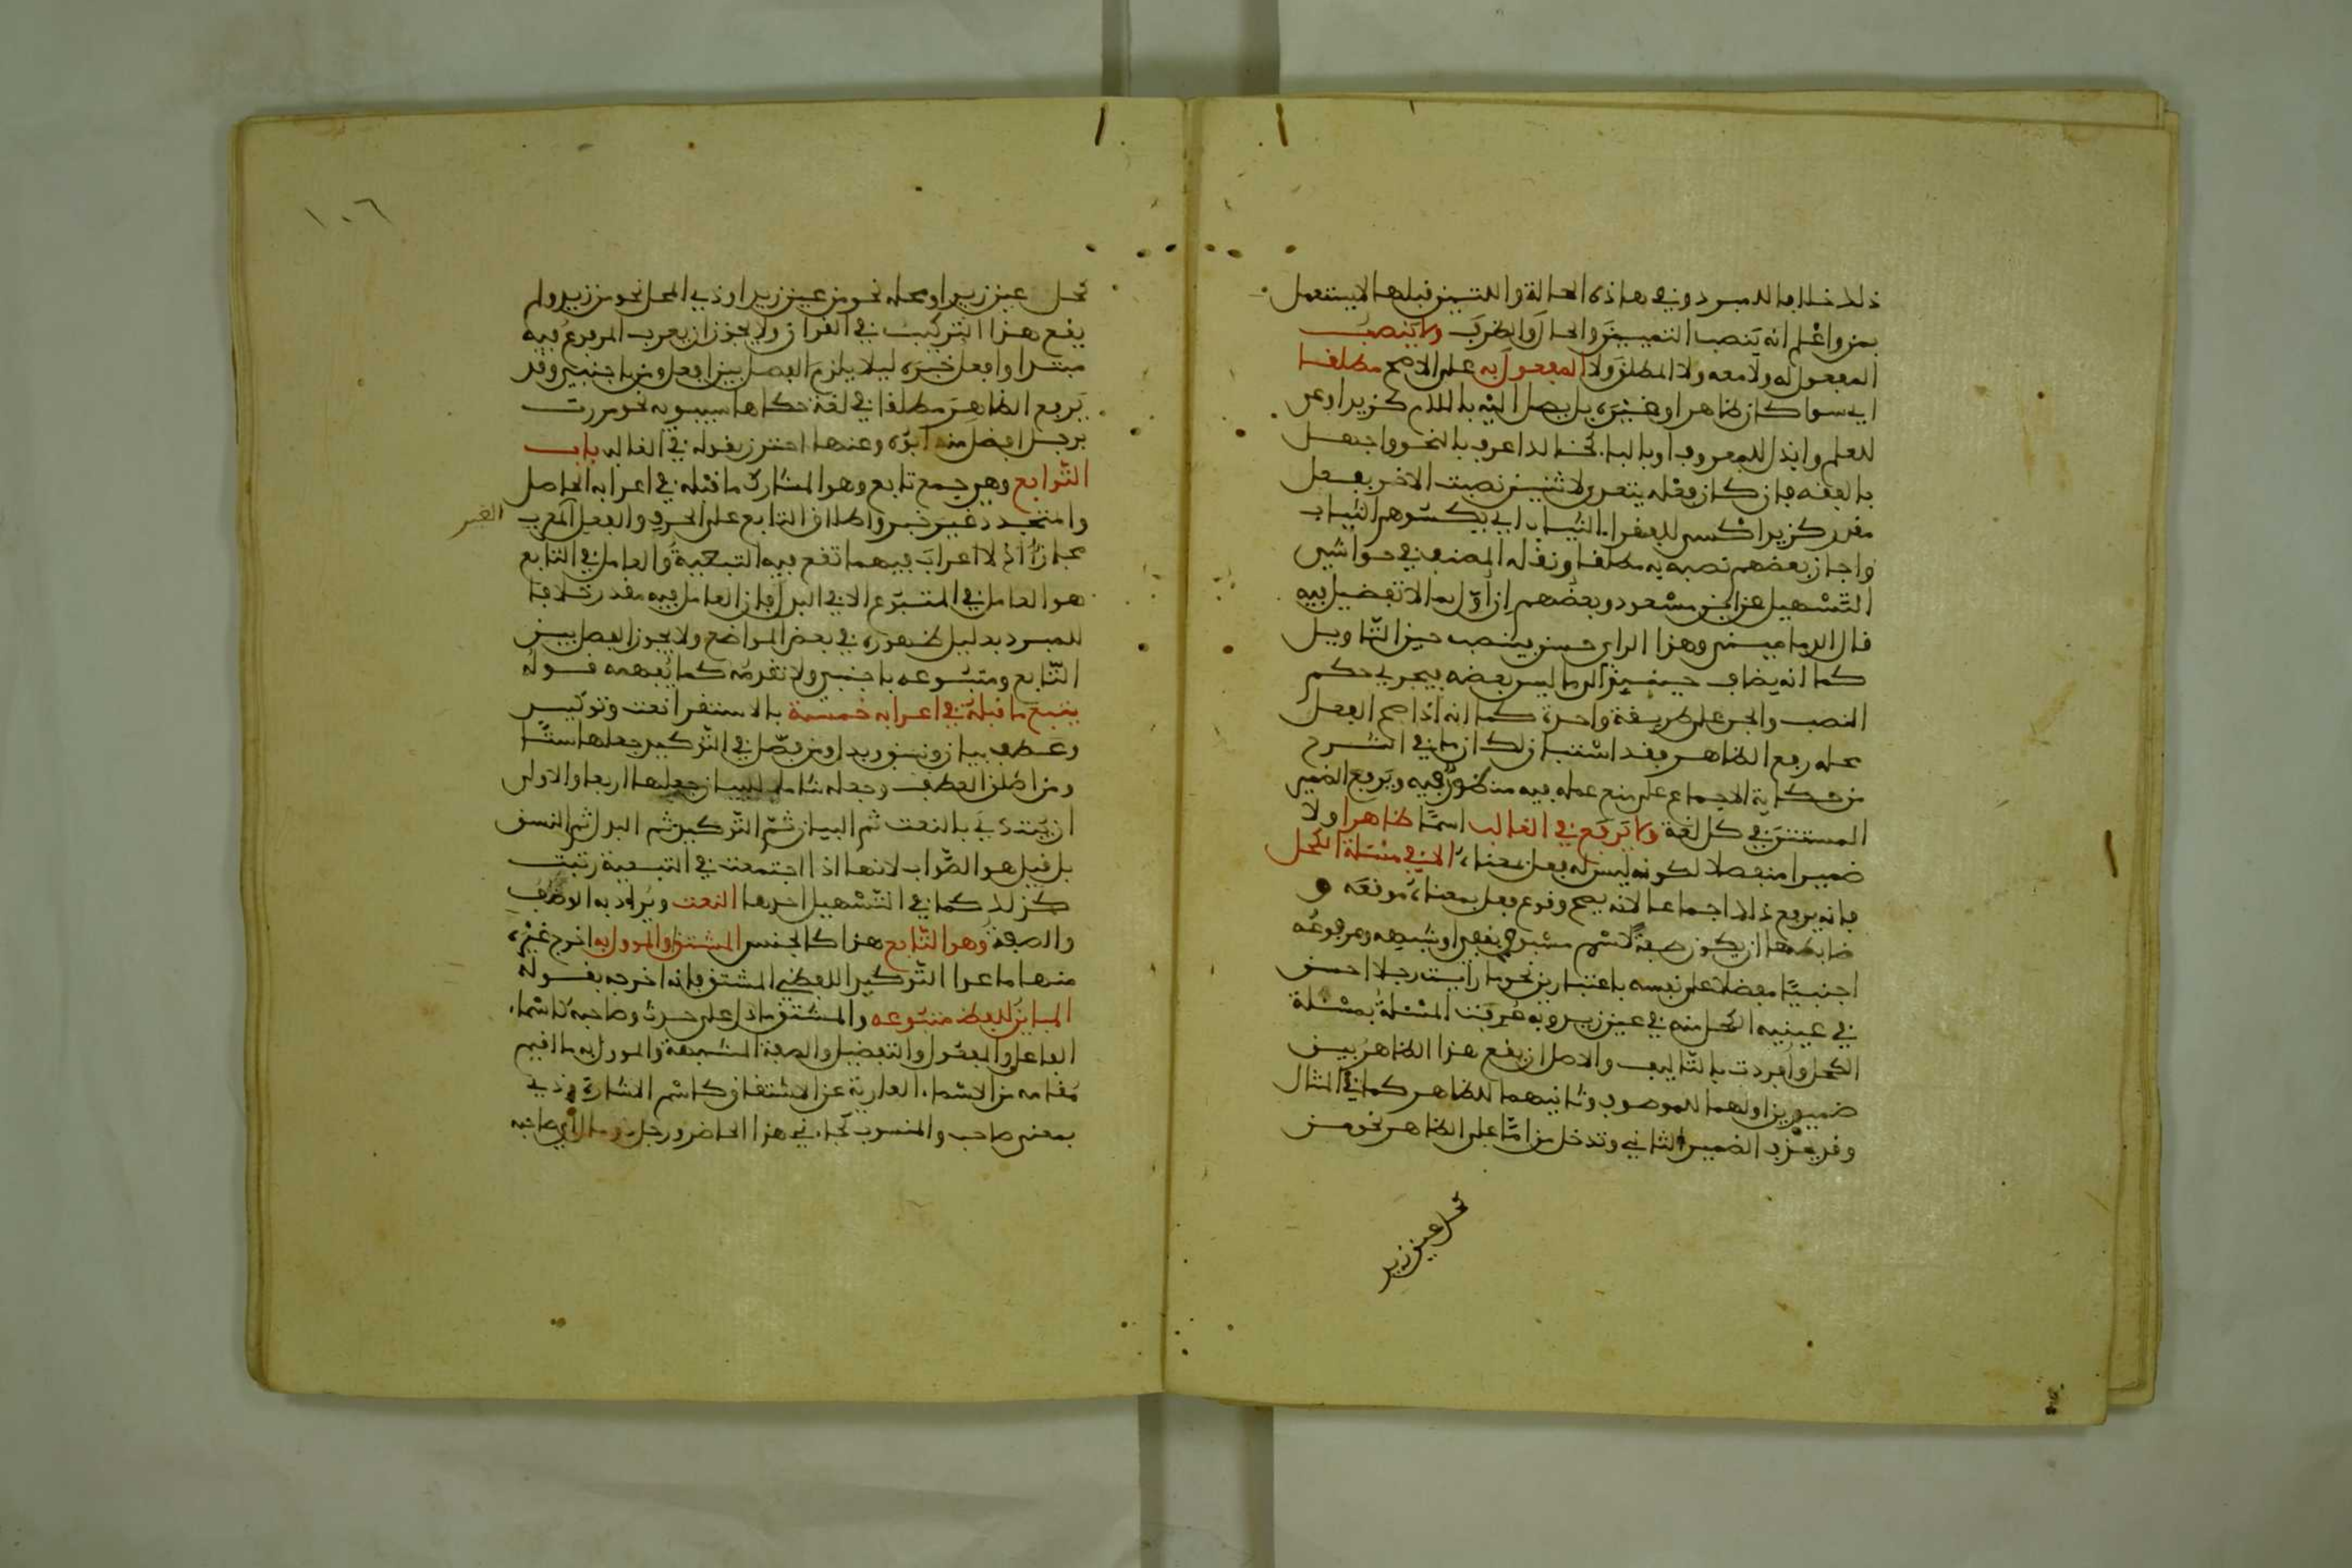 ذلك خلافا للمبرد وفي هاذه الحالة والتين قبلها لا يستعمل
بمن واعلم انه ينصب التمييز والحال والظرف ولا ينصب
المفعول له ولا معه ولا المطلق ولا المفعول به على الاصح مطلقا
اي سوا كان ظاهرا او غيره بل يصل اليه باللام كزيد اوعى
للعلم وابذل للمعروف او بالباء نحو اعرف بالنحو واجهل
بالفقه فان كان فعله يتعدى لاثنين نصبت الاخر بفعل
مقدر كزيد اكسى للفقراء الثياب اي يكسوهم الثياب
واجاز بعضهم نصبه به مطلقا ونقله المصنف في حواشي
التسهيل عن ابن مسعود وبعضهم ان اول بما لا تفضيل فيه
قال الدماميني وهذا الراي حسن فينصب حين التاويل
كما انه يضاف حينئذ لما ليس بعضه فيجري حكم
النصب والجر على طريقة واحدة كما انه اذا صح الفعل
محله رفع الظاهر فقد استبان لك ان ما في الشرح
من حكاية الاجماع على منع عمله فيه منظور فيه ويرفع الضمير
المستتر في كل لغة ولا يرفع في الغالب اسما ظاهرا ولا
ضميرا منفصلا لكونه ليس له فعل بمعناه الا في مسئلة الكحل
فانه يرفع ذلك اجماعا لانه يصح وقوع فعل بمعناه موقعه و
ضابطها ان يكون صفة لاسم مسبوق بنفي او شبهه ومرفوعه
اجنبيا مفضلا على نفسه باعتبارين نحو ما رايت رجلا احسن
في عينيه الكحل منه في عين زيد وبه عرفت المسئلة بمسئلة
الكحل وافردت بالتاليف والاصل ان يقع هذا الظاهر بين
ضميرين اولهما للموصوف وثانيهما للظاهر كما في المثال
وقد يحذف الضمير الثاني وتدخل من اما على الظاهر نحو من
كحل عين زيد
١٠٦
كحل عين زيد او محله نحو من عين زيد او ذي المحل نحو من زيد ولم
يقع هذا التركيب في القران ولا يجوز ان يعرب المرفوع فيه
مبتدا وافعل خبره ليلا يلزم الفصل بين افعل ومن باجنبي وقد
يرفع الظاهر مطلقا في لغة حكاها سيبويه نحو مررت
برجل افضل منه ابوه وعنها احترز بقوله في الغالب باب
التوابع وهي جمع تابع وهو المشارك ما قبله في اعرابه الحاصل
والمتجدد غير خبر واطلاق التابع على الحرف والفعل المعرب
مجاز اذ لا اعراب فيهما تقع فيه التبعية والعامل في التابع
هو العامل في المتبوع الا في البدل فان العامل فيه مقدر خلافا
للمبرد بدليل ظهوره في بعض المواضع ولا يجوز الفصل بين
التابع ومتبوعه باجنبي ولا تقدمه كما يفهمه قوله
يتبع ما قبله في اعرابه خمسة بالاستقرا نعت وتوكيد
وعطف بيان ونسق وبدل ومن فصل في التوكيد جعلها ستا
ومن اطلق العطف وجعله شاملا للبيان جعلها اربعا والاولى
ان يبتدئ بالنعت ثم البيان ثم التوكيد ثم البدل ثم النسق
بل قيل هو الصواب لانها اذا اجتمعت في التبعية رتبت
كذلك كما في التسهيل احدها النعت ويرادفه الوصف
والصفة وهو التابع هذا كالجنس المشتق او المؤول به اخرج غيره
منها ما عدا التوكيد اللفظي المشتق فانه اخرجه بقوله
المباين للفظ متبوعه والمشتق ما دل على حدث وصاحبه كاسماء
الفاعل والمفعول والتفضيل والصفة المشبهة والمؤول به ما اقيم
مقامه من الاسماء العارية عن الاشتقاق كاسم الاشارة وذي
بمعنى صاحب والمنسوب كجاءني هذا الحاضر ورجل ذو مال اي صاحبه